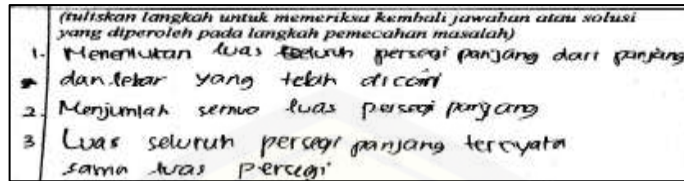 (tuliskan langkah untuk memeriksa kembali jawaban atau solusi
yang diperoleh pada langkah pemecahan masalah)
1. Menentukan luas seluruh persegi panjang dari panjang
dan lebar yang telah dicari
2. Menjumlah semua luas persegi panjang
3 Luas seluruh persegi panjang ternyata
sama luas persegi